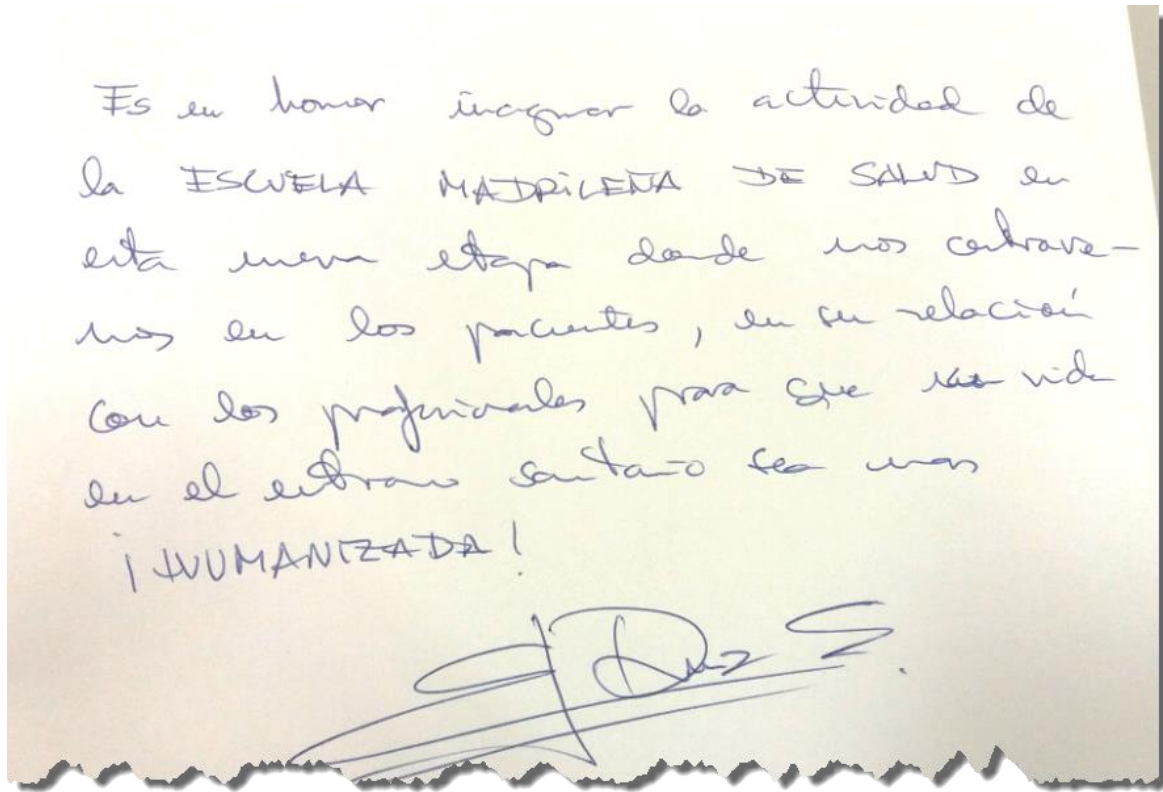 Es un honor inagurar la actividad de
la ESCUELA MADRILEÑA DE SALUD en
esta nueva etapa donde nos centrare-
mos en los pacientes, en su relación
con los profesionales para que su vida
en el entorno sanitario sea mas
¡HUMANIZADA!